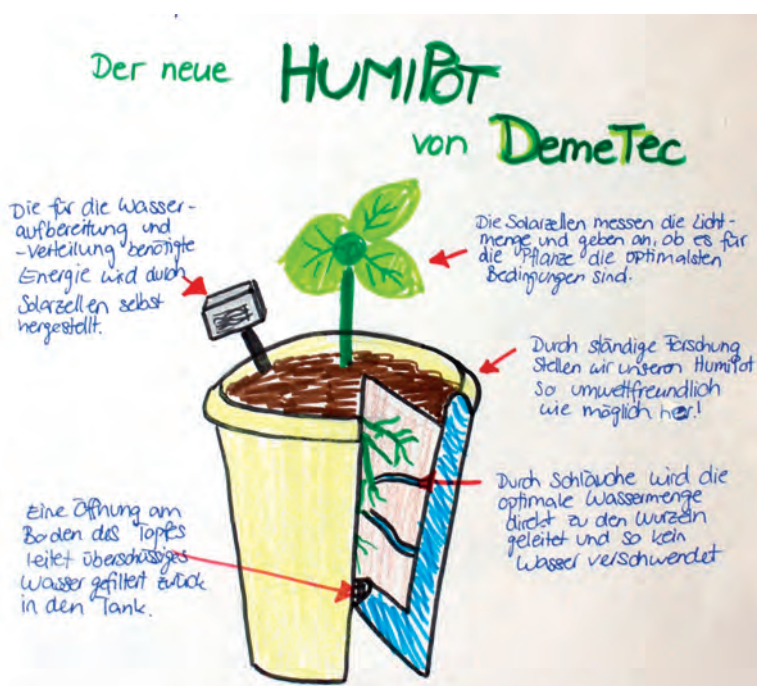 Der neue HUMIPOT
von DemeTec
Die für die Wasser-
aufbereitung und
-Verteilung benötigte
Energie wird durch
Solarzellen selbst
hergestellt.
Die Solarzellen messen die Licht-
menge und geben an, ob es für
die Pflanze die optimalsten
Bedingungen sind.
Durch ständige Forschung
stellen wir unseren Humipot
so umweltfreundlich
wie möglich her!
Durch Schläuche wird die
optimale Wassermenge
direkt zu den Wurzeln
geleitet und so kein
Wasser verschwendet
Eine Öffnung am
Boden des Topfes
leitet überschüssiges
Wasser gefiltert zurück
in den Tank.